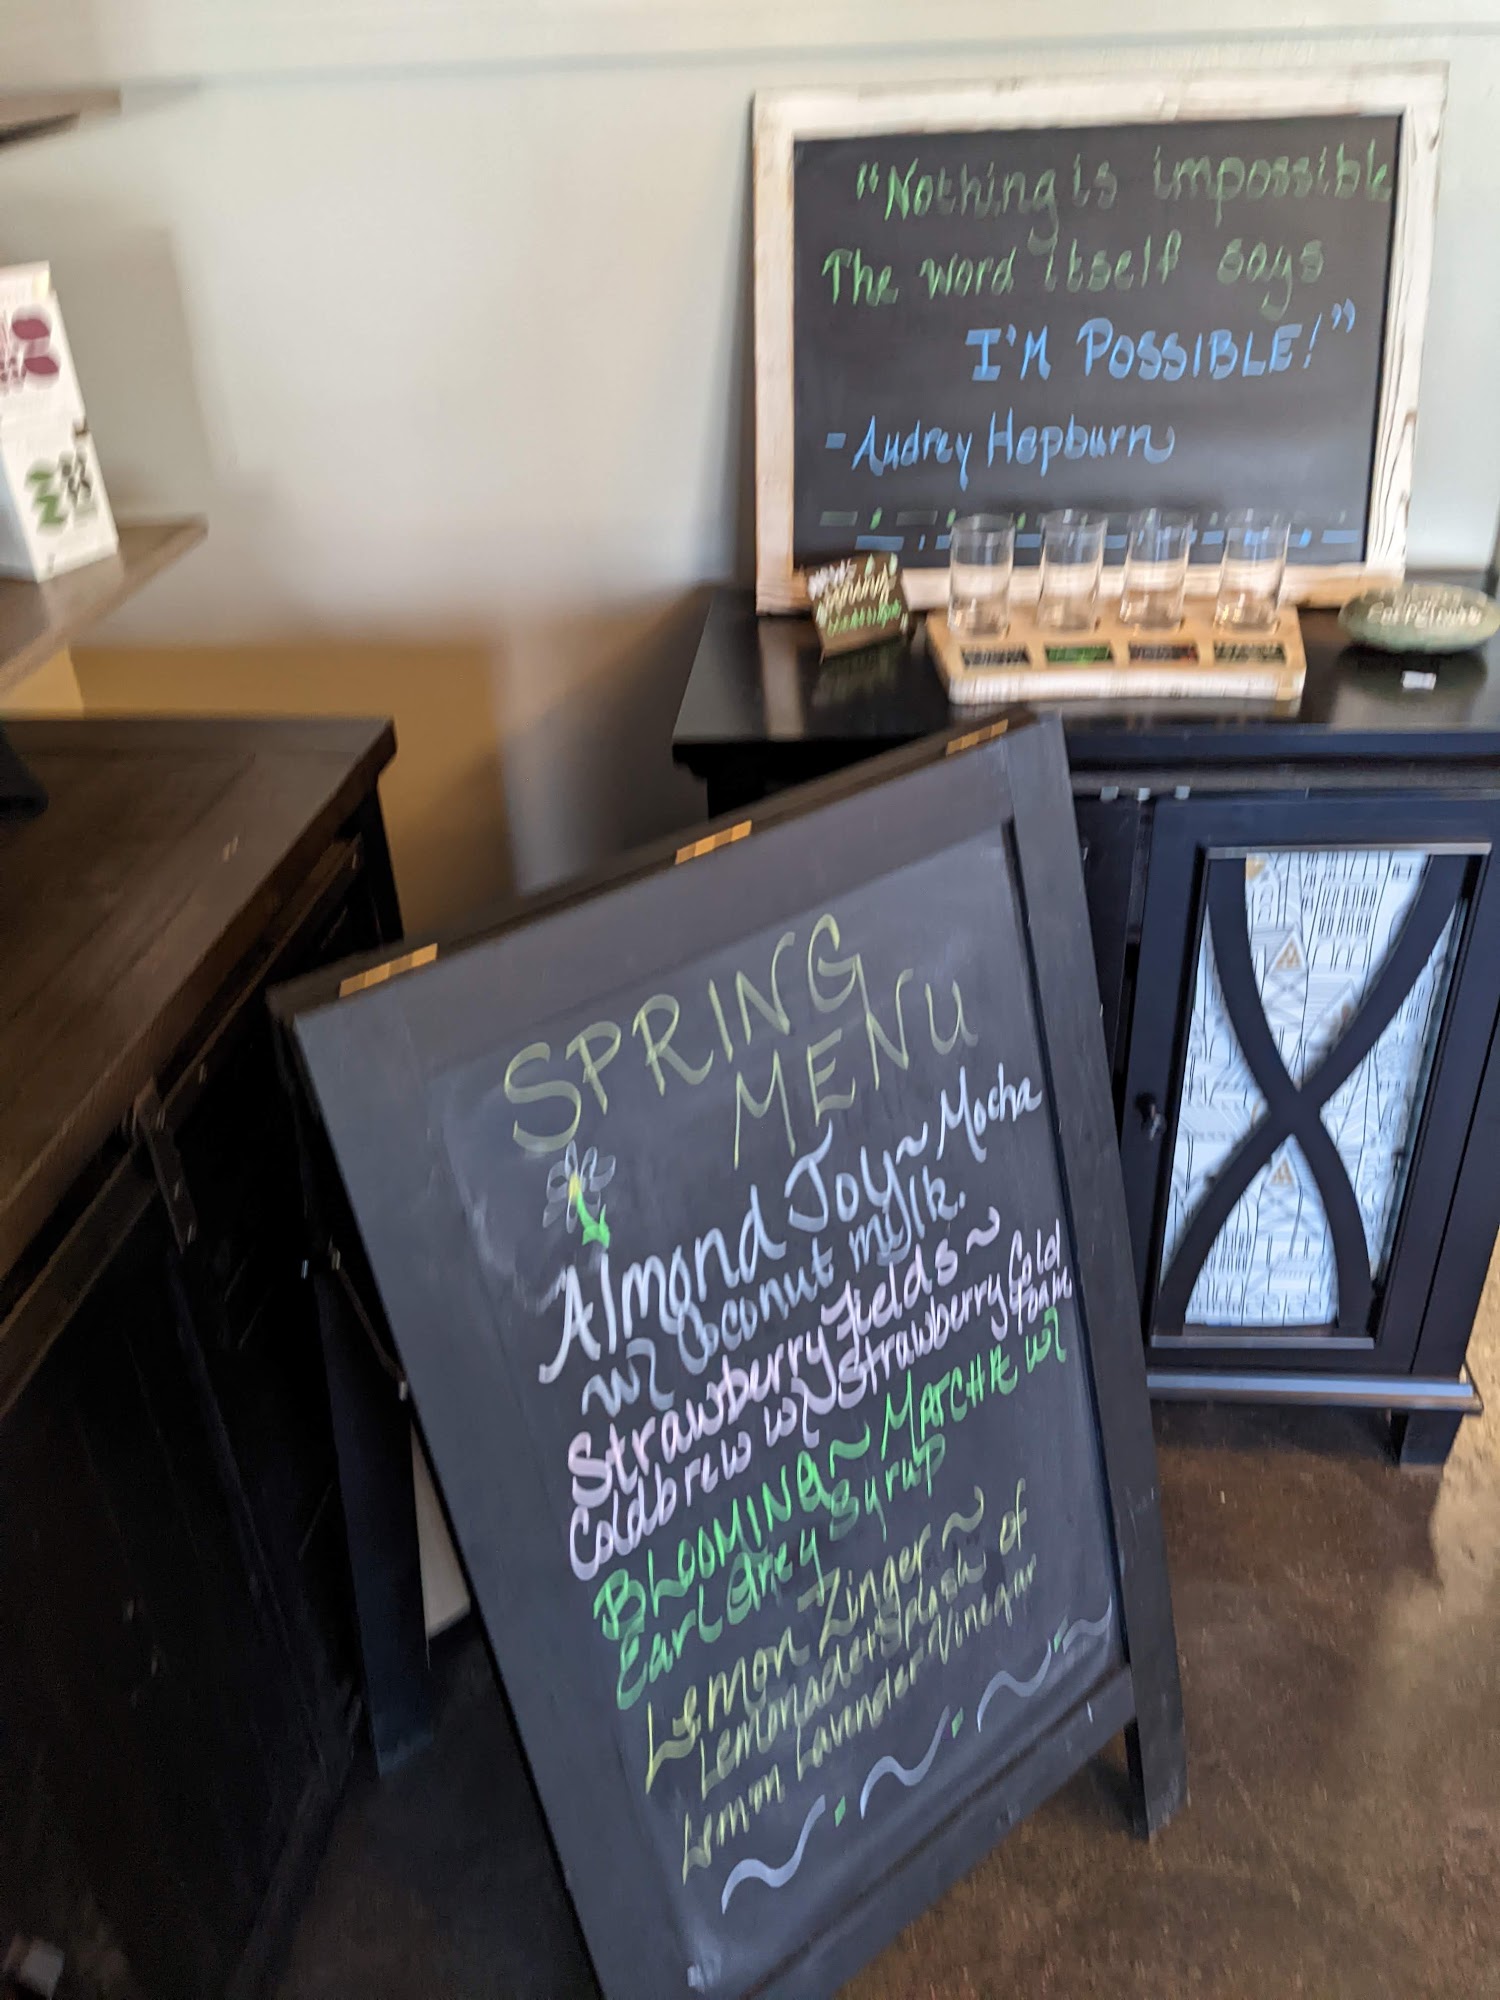 "Nothing is impossible
The word itself says
I'M POSSIBLE!"
- Audrey Hepburn
SPRING
MENU
Almond Joy ~ Mocha
w/ Coconut mylk.
Strawberry Fields ~
Coldbrew w/ Strawberry Cold
Foam
BLOOMING ~ MATCHA w/
Earl Grey Syrup
Lemon Zinger ~
Lemonade + Splash of
Lemon Lavender Vinegar